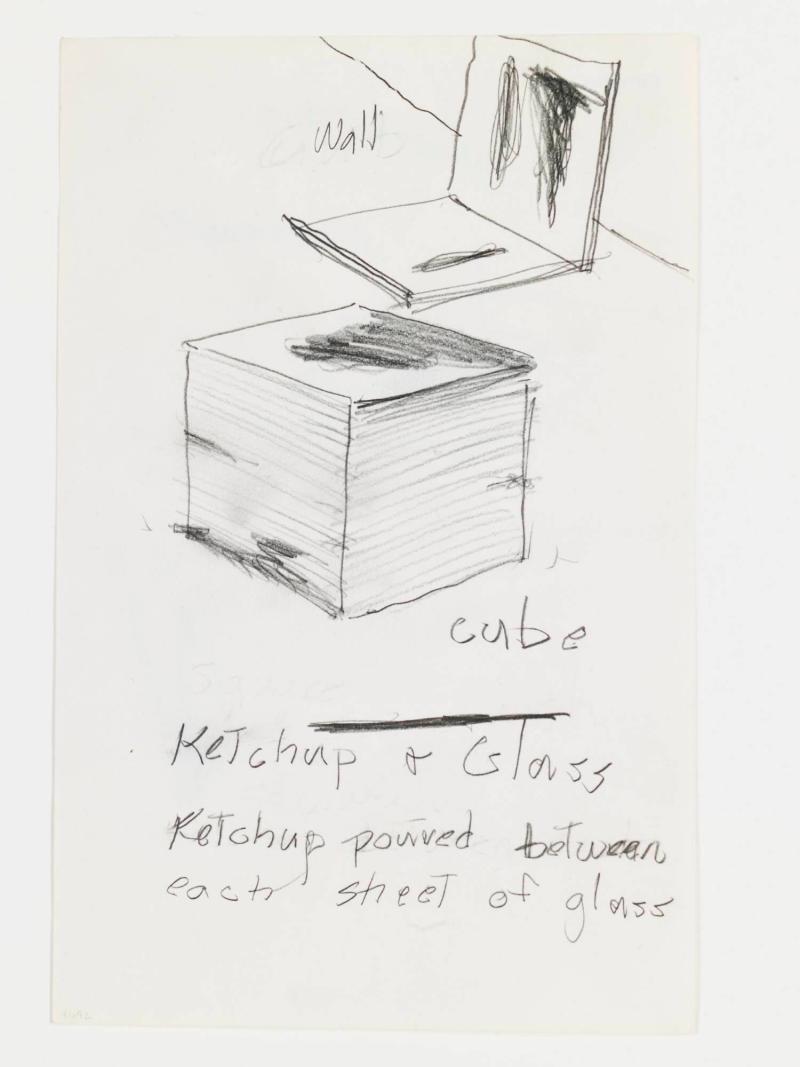 Wall
cube
Ketchup & Glass
Ketchup poured between
each sheet of glass